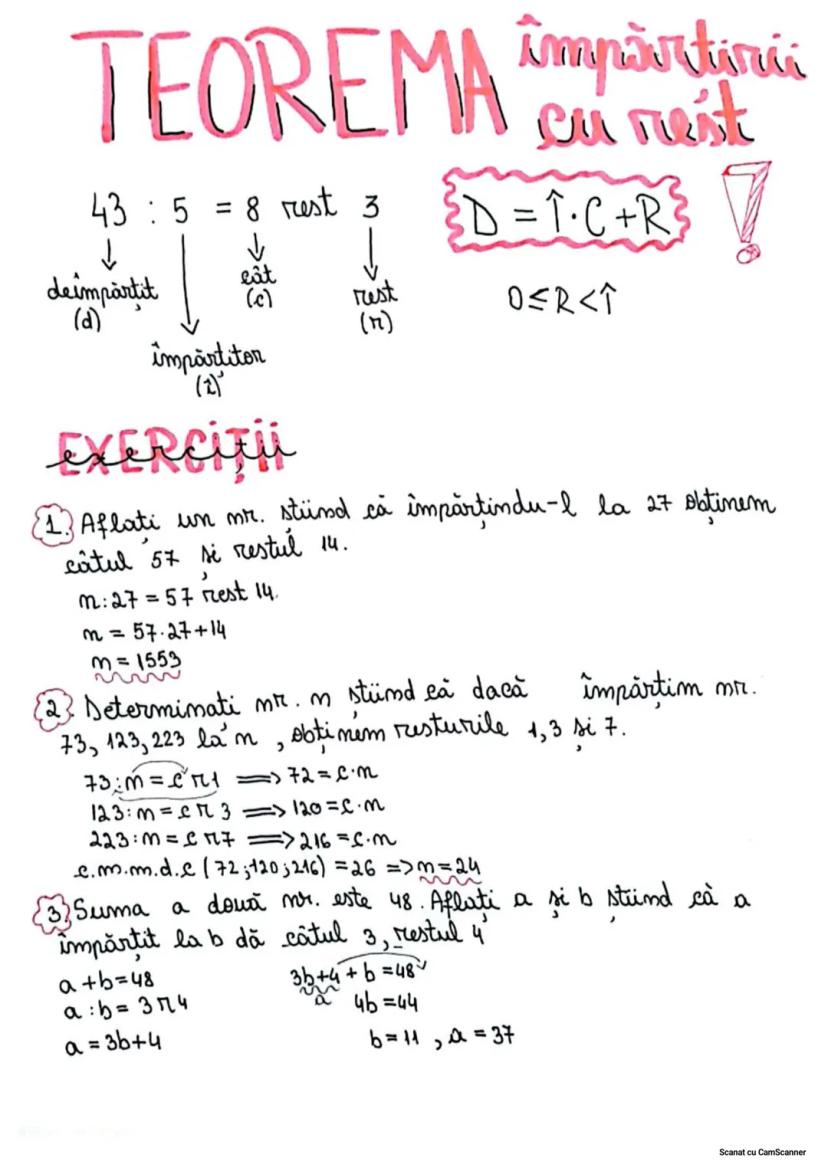 TEOREMA împărțirii
cu rest
43 : 5 = 8 rest 3
D = Î·C+R
deîmpărțit
(d)
cât
(c)
rest
(r)
împărțitor
(î)
0≤R<Î
exerciții
1. Aflați un nr. știind că împărțindu-l la 27 obținem
câtul 57 și restul 14.
n:27 = 57 rest 14.
n = 57·27+14
n = 1553
2. Determinati nr. n știind că dacă împărțim nr.
73, 123, 223 la n, obținem resturile 1,3 și 7.
73:n = c r1 => 72 = c·n
123:n = c r 3 => 120 = c·n
223:n = c r7 => 216 = c·n
c.m.m.d.c (72;120;216) = 26 => n = 24
3. Suma a două nr. este 48. Aflați a și b știind că a
împărțit la b dă câtul 3, restul 4
a+b=48
a:b= 3 r4
a = 3b+4
3b+4 + b = 48
a
4b = 44
b = 11, a = 37
Scanat cu CamScanner